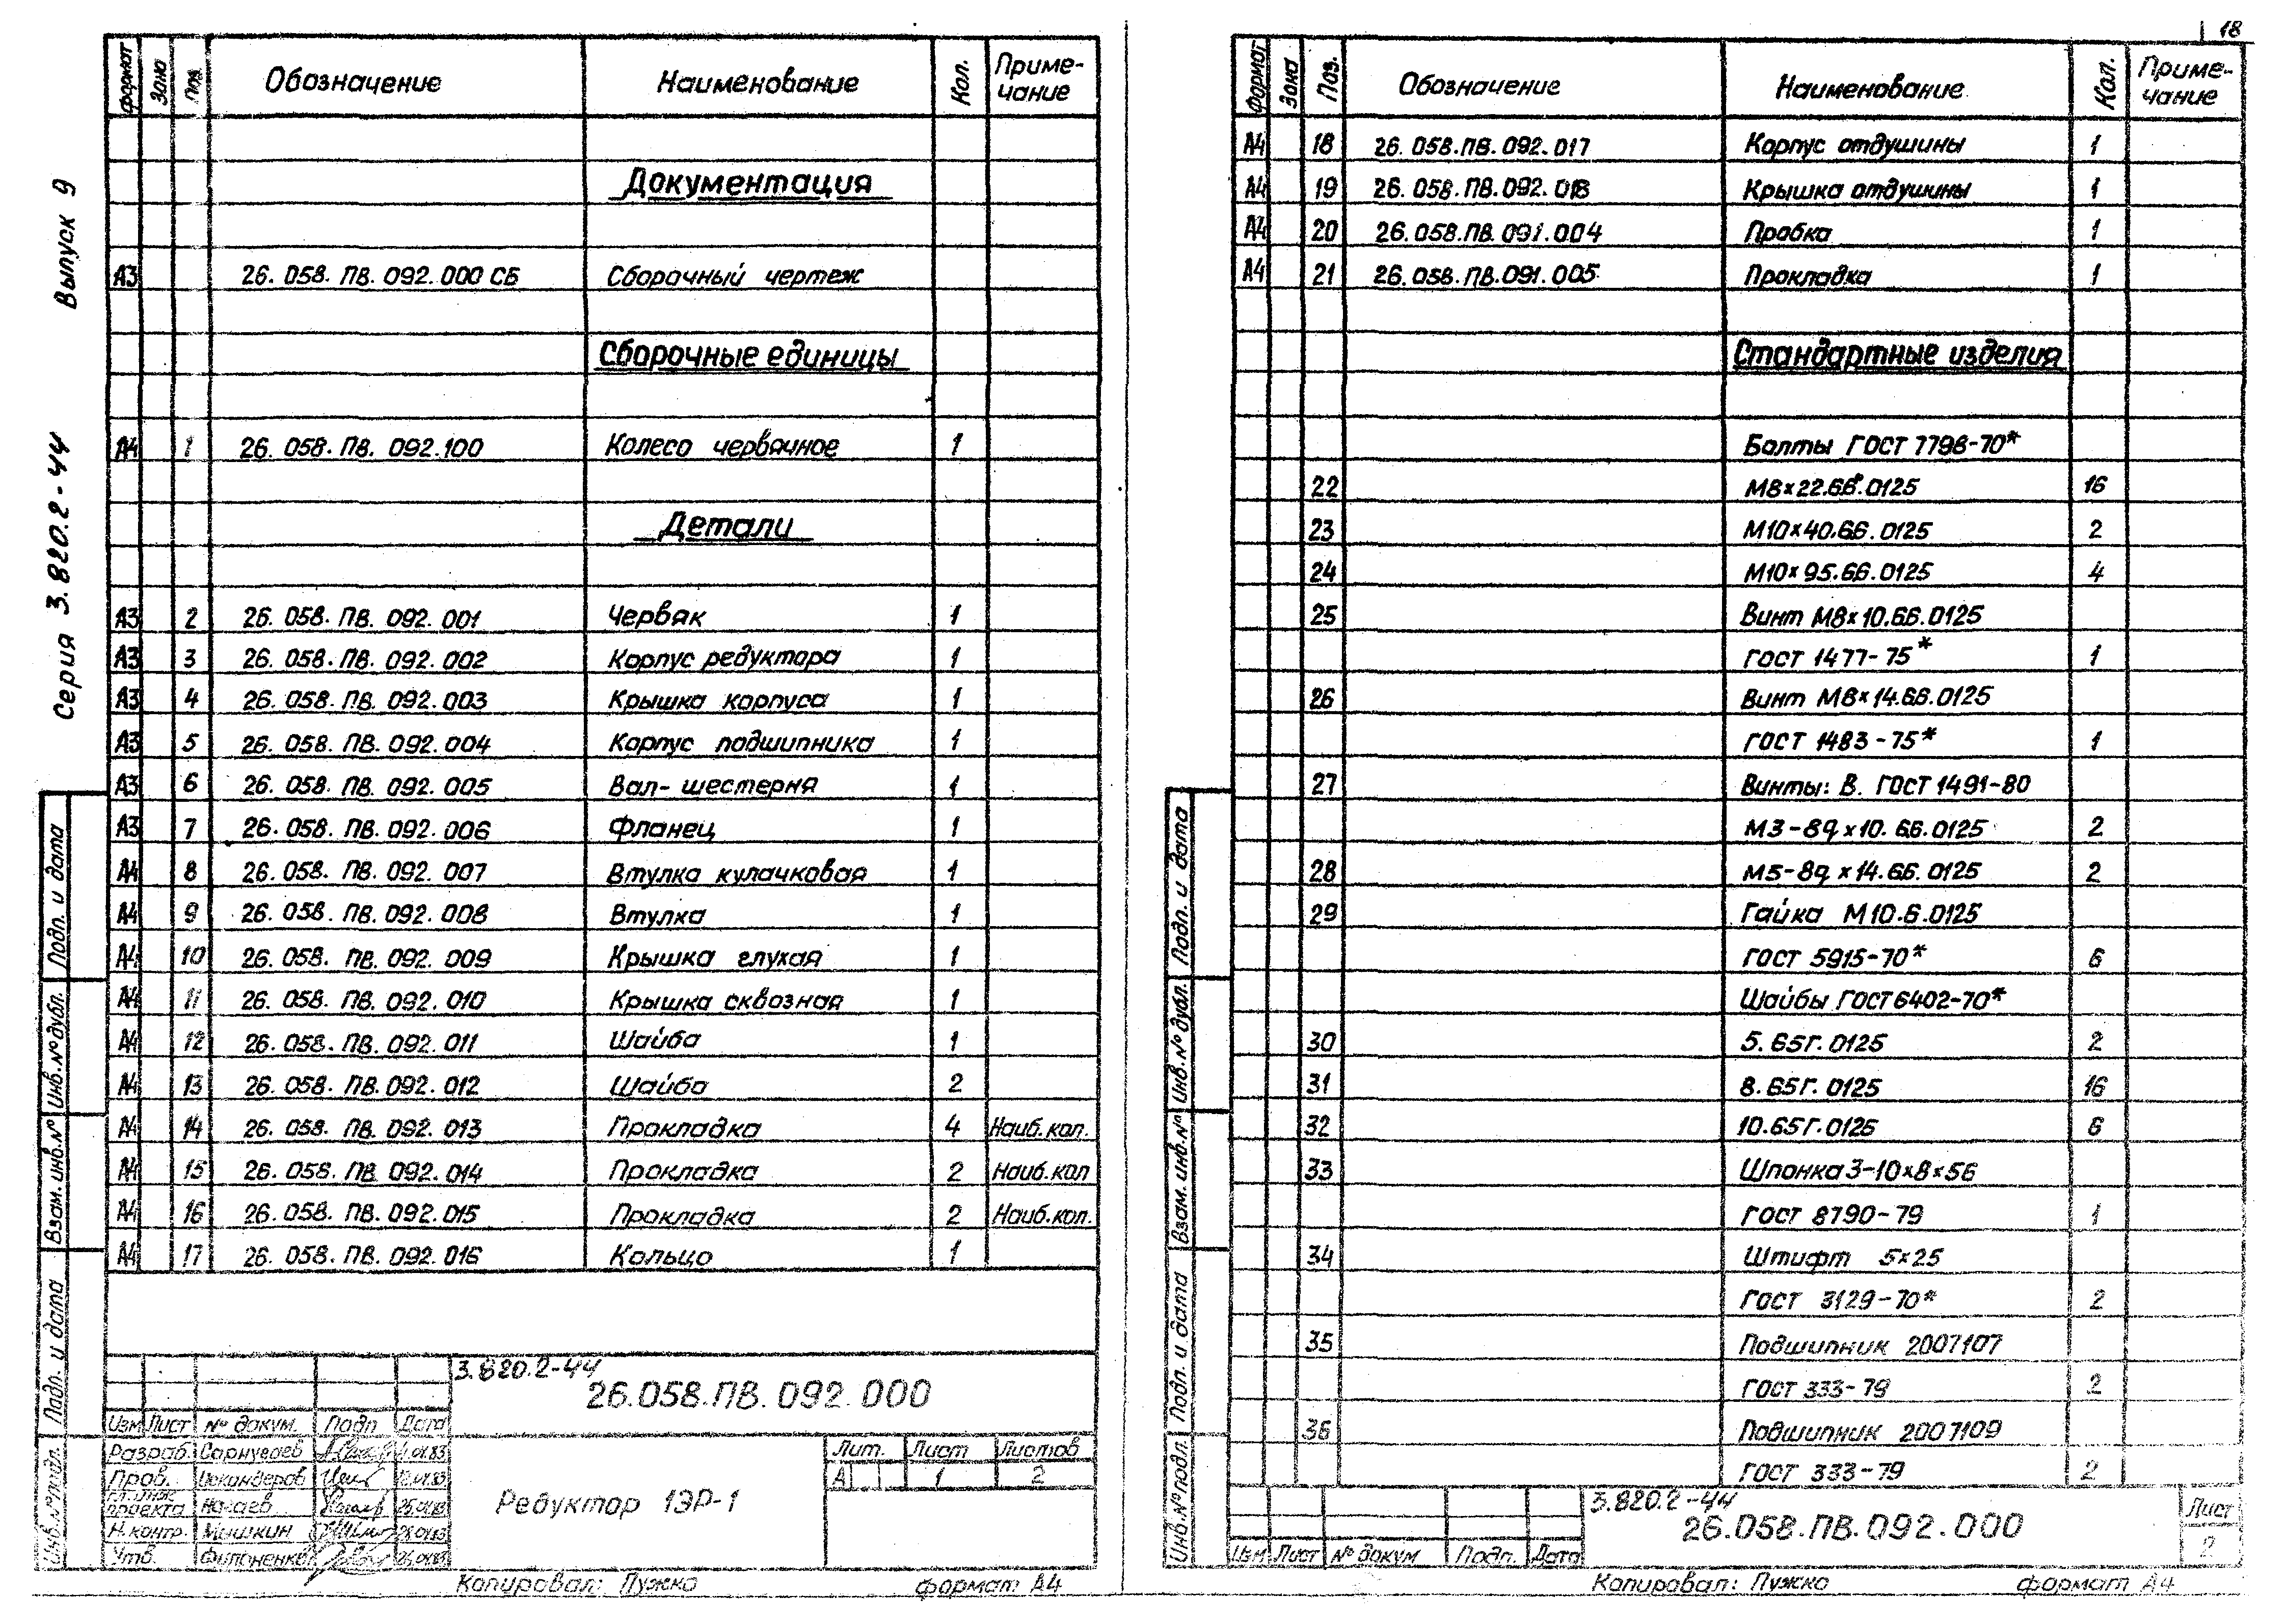 18
Серия 3.820.2-44 Выпуск 9
Формат Зона Поз. Обозначение Наименование Кол. Приме-
чание
Документация
А3 26.058.ПВ.092.000 СБ Сборочный чертеж
Сборочные единицы
А4 1 26.058.ПВ.092.100 Колесо червячное 1
Детали
А3 2 26.058.ПВ.092.001 Червяк 1
А3 3 26.058.ПВ.092.002 Корпус редуктора 1
А3 4 26.058.ПВ.092.003 Крышка корпуса 1
А3 5 26.058.ПВ.092.004 Корпус подшипника 1
А3 6 26.058.ПВ.092.005 Вал-шестерня 1
А3 7 26.058.ПВ.092.006 Фланец 1
А4 8 26.058.ПВ.092.007 Втулка кулачковая 1
А4 9 26.058.ПВ.092.008 Втулка 1
А4 10 26.058.ПВ.092.009 Крышка глухая 1
А4 11 26.058.ПВ.092.010 Крышка сквозная 1
А4 12 26.058.ПВ.092.011 Шайба 1
А4 13 26.058.ПВ.092.012 Шайба 2
А4 14 26.058.ПВ.092.013 Прокладка 4 Наиб.кол.
А4 15 26.058.ПВ.092.014 Прокладка 2 Наиб.кол
А4 16 26.058.ПВ.092.015 Прокладка 2 Наиб.кол.
А4 17 26.058.ПВ.092.016 Кольцо 1
Инв.№ подл. Подп. и дата Взам.инв.№ Инв.№ дубл. Подп. и дата
3.820.2-44
26.058.ПВ.092.000
Изм Лист № докум. Подп Дата
Разраб. Сарнугаев .01.83
Пров. Искандеров .01.83
Гл. инж.
проекта Нагаев 25.01.83
Н.контр. Мышкин 28.01.83
Утв. Филоненко
Редуктор 1ЭР-1
Лит. Лист Листов
А 1 2
Копировал: Пужко формат А4
Формат Зона Поз. Обозначение Наименование Кол. Приме-
чание
А4 18 26.058.ПВ.092.017 Корпус отдушины 1
А4 19 26.058.ПВ.092.018 Крышка отдушины 1
А4 20 26.058.ПВ.091.004 Пробка 1
А4 21 26.058.ПВ.091.005 Прокладка 1
Стандартные изделия
Болты ГОСТ 7798-70*
22 М8×22.66.0125 16
23 М10×40.66.0125 2
24 М10×95.66.0125 4
25 Винт М8×10.66.0125
ГОСТ 1477-75* 1
26 Винт М8×14.66.0125
ГОСТ 1483-75* 1
27 Винты: В. ГОСТ 1491-80
М3-8q×10.66.0125 2
28 М5-8q×14.66.0125 2
29 Гайка М10.6.0125
ГОСТ 5915-70* 6
Шайбы ГОСТ 6402-70*
30 5.65Г.0125 2
31 8.65Г.0125 16
32 10.65Г.0125 6
33 Шпонка 3-10×8×56
ГОСТ 8790-79 1
34 Штифт 5×25
ГОСТ 3129-70* 2
35 Подшипник 2007107
ГОСТ 333-79 2
36 Подшипник 2007109
ГОСТ 333-79 2
Инв.№ подл. Подп. и дата Взам.инв.№ Инв.№ дубл. Подп. и дата
3.820.2-44
26.058.ПВ.092.000
Лист
2
Изм Лист № докум Подп. Дата
Копировал: Пужко формат А4